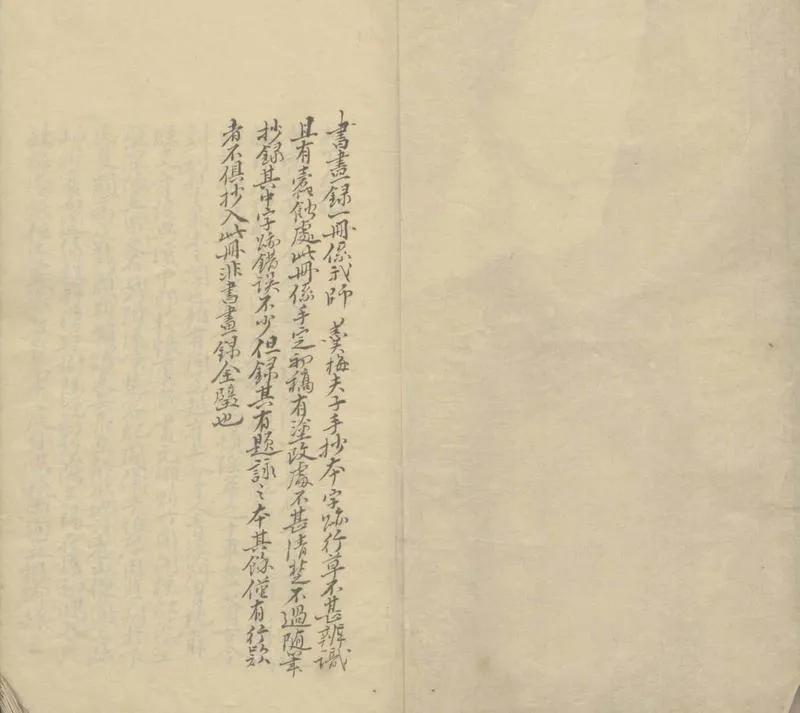 書畫錄一冊係我師 羹梅夫子手抄本字跡行草不甚辨識
且有蠹蝕處此冊係手定初稿有塗改處不甚清楚不過随筆
抄錄其中字跡錯誤不少但録其有題詠之本其餘僅有行款
者不俱抄入此冊非書畫録全璧也